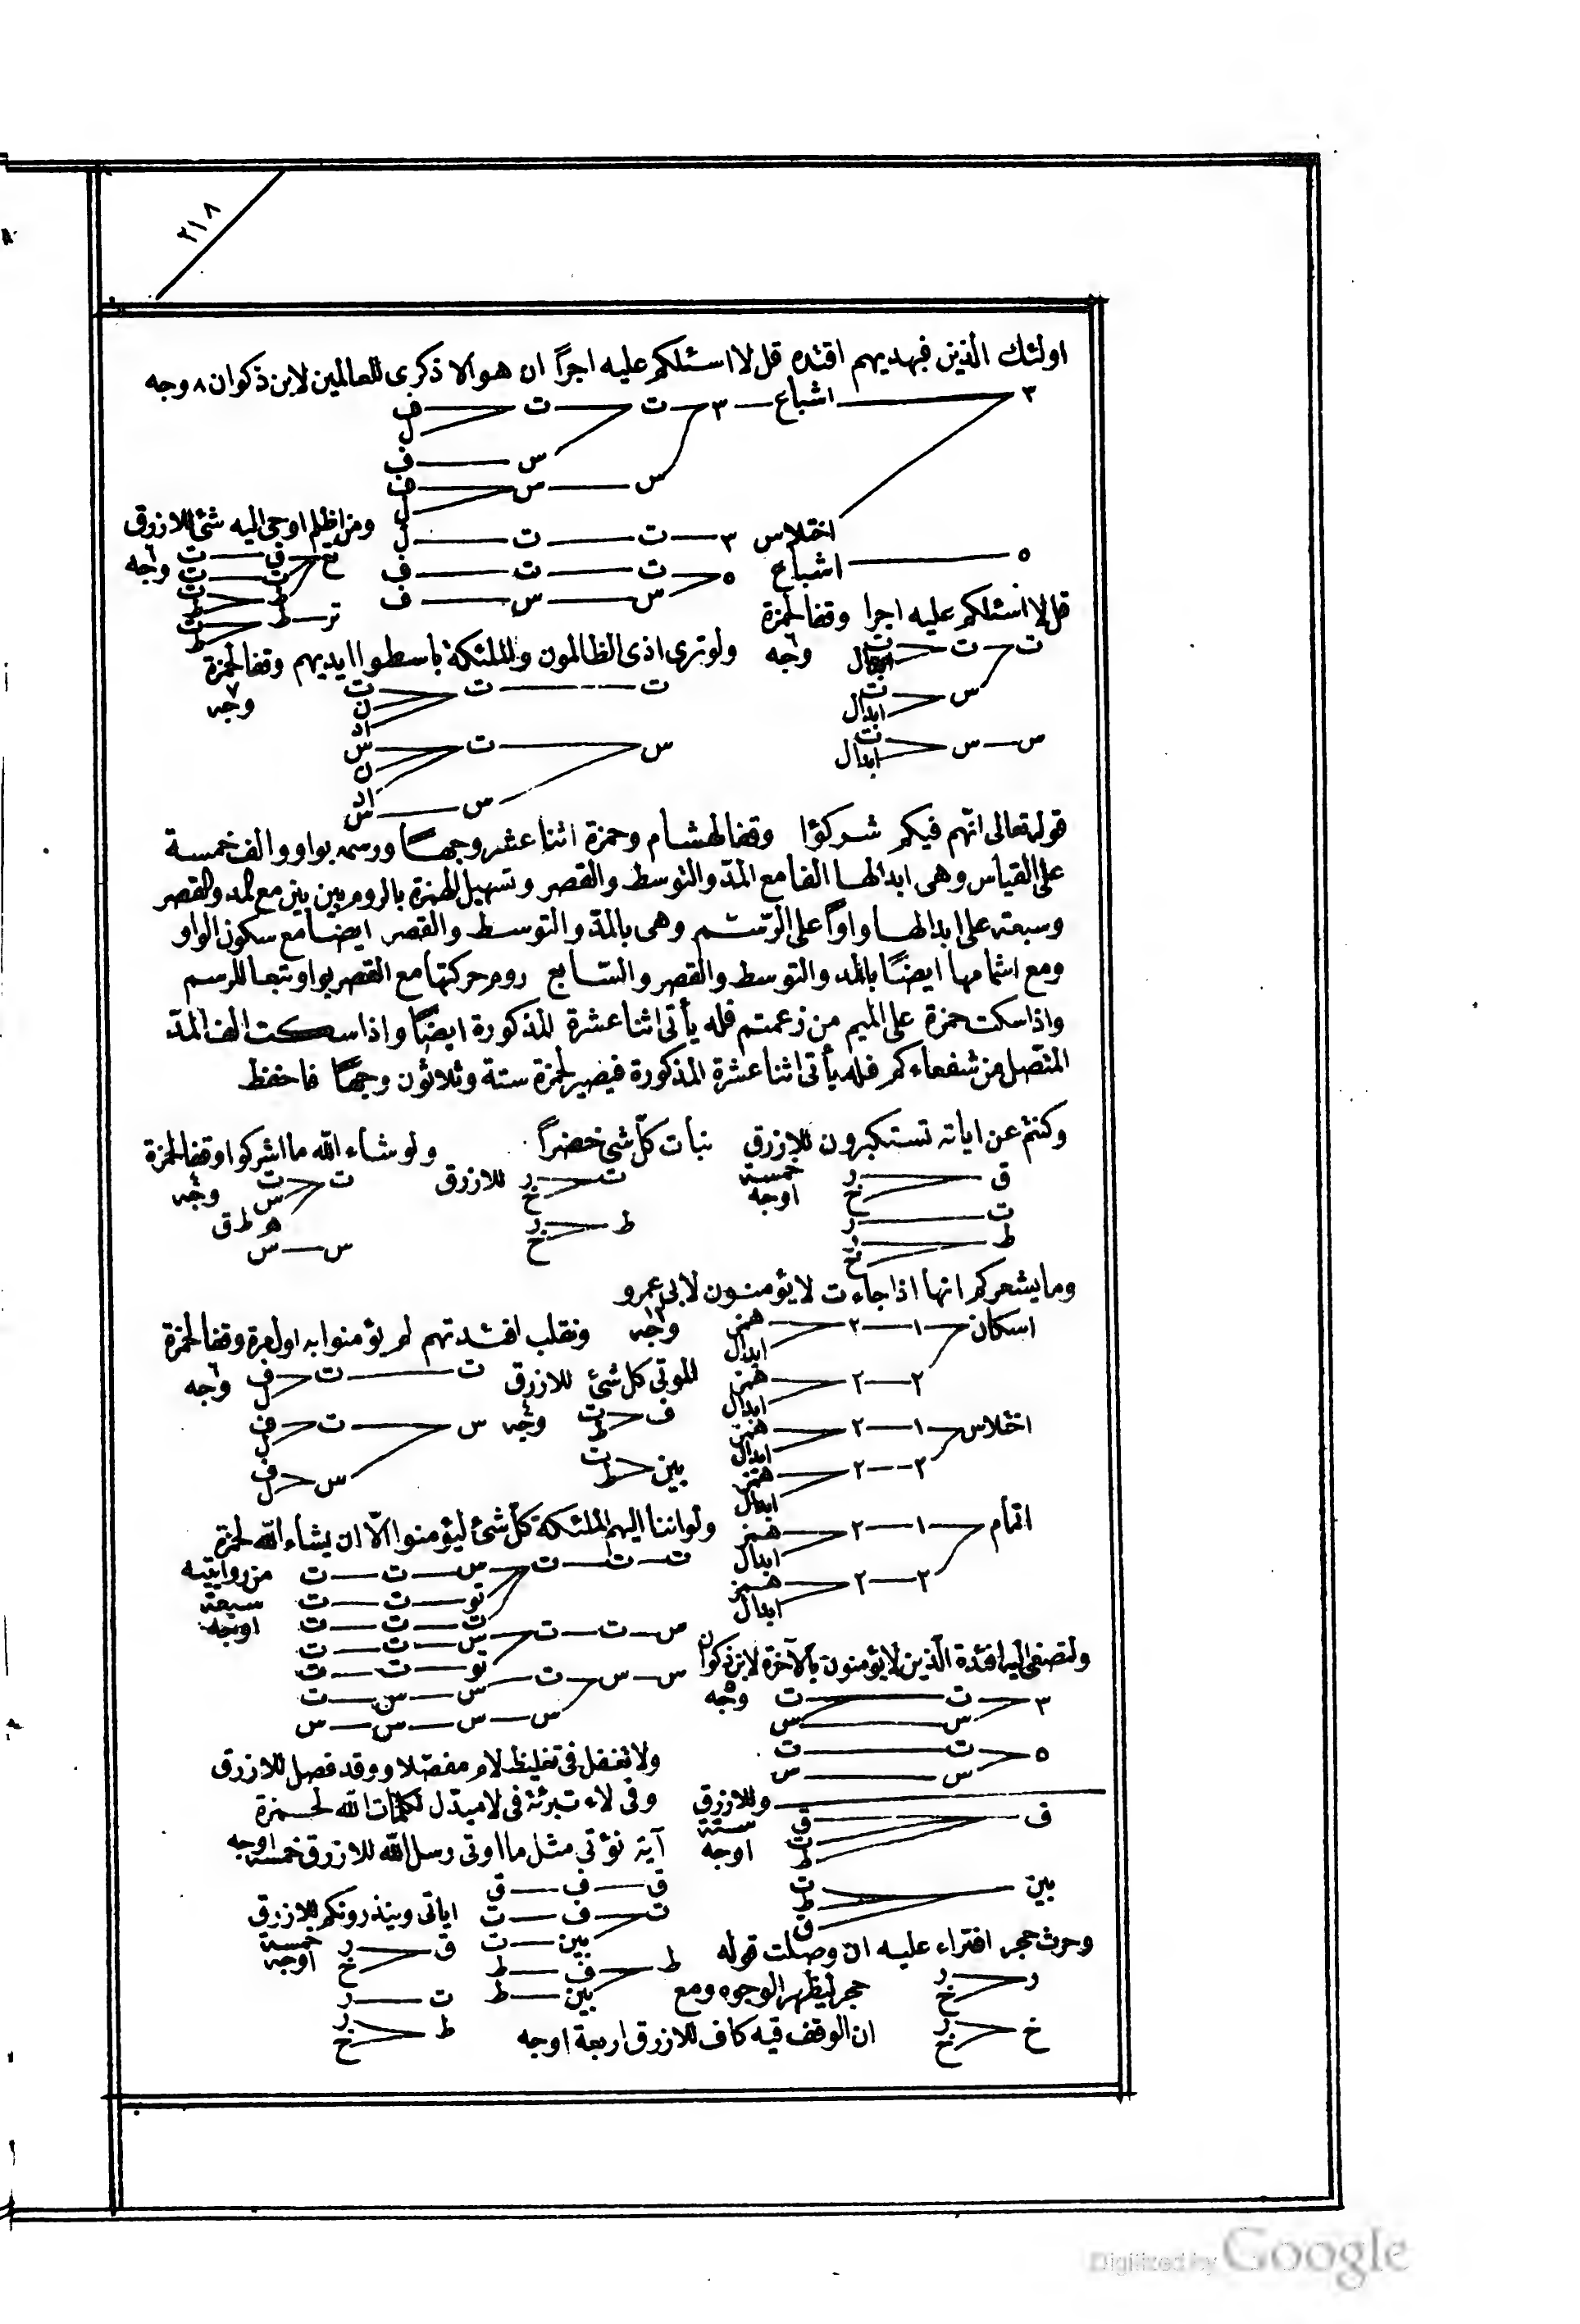 ٢١٨
اولئك الذين فبهديهم اقتده قل لا اسئلكم عليه اجرًا ان هو الا ذكرى للعالمين لابن ذكوان ٨ وجه
٣ اشباع ٣ ت ت ف
ل
س ف
س س ف
ل
اختلاس ٣ ت ت ل
٥ اشباع ٥ ت ت ف
س س ف
ومن اظلم اوحى اليه شئ للازرق
٦ وجه
تغ ق ت
ت ت
ط ت
ط
تر ط ت
ط
قل لا اسئلكم عليه اجرا وقفا لحمزة
٦ وجه
ت ت ت
ابدال
س ت
ابدال
س س ت
ابدال
ولو ترى اذى الظالمون والملئكة باسطوا ايديهم وقفا لحمزة
٧ وجه
ت ت ت
ن
اد
س ت س
ن
اد
س س
قوله تعالى انهم فيكم شركؤا وقفا لهشام وحمزة اثنا عشر وجهًا ورسمه بواو والف خمسة
على القياس وهى ابدالها الفا مع المدّ والتوسط والقصر وتسهيل الهمزة بالروم بين بين مع المد والقصر
وسبعة على ابدالها واوًا على الرّسم وهى بالمدّ والتوسط والقصر ايضًا مع سكون الواو
ومع اشمامها ايضًا بالمد والتوسط والقصر والسّابع روم حركتها مع القصر بواو تبعا للرسم
واذا سكت حمزة على الميم من زعمتم فله يأتى اثنا عشرة المذكورة ايضًا واذا سكت الف المدّ
المتّصل من شفعاءكم فله يأتى اثنا عشرة المذكورة فيصير لحمزة ستة وثلاثون وجهًا فاحفظ
وكنتم عن اياته تستكبرون للازرق
خمسة اوجه
ق ر
خ
ت ر
ط ر
خ
نبات كلّ شئ خضرًا
للازرق
ت ر
خ
ط ر
خ
ولو شاء الله ما اشركوا وقفا لحمزة
٤ وجه
ت ت
س
هو طرق
س س
وما يشعركم انها اذا جاءت لا يؤمنون لابى عمرو
١٢ وجه
اسكان ١ ٢ همز
ابدال
٢ ٢ همز
ابدال
اختلاس ١ ٢ همز
ابدال
٢ ٢ همز
ابدال
اتمام ١ ٢ همز
ابدال
٢ ٢ همز
ابدال
ونقلب افئدتهم لم يؤمنوا به اول مرة وقفا لحمزة
٦ وجه
ت ت ف
ل
س ت ف
ل
س ف
ل
الموتى كل شئ للازرق
٤ وجه
ف ت
ط
بين ت
ط
ولو اننا اليهم الملئكة كلّ شئ ليؤمنوا الّا ان يشاء الله لحمزة
من روايتيه
سبعة
اوجه
ت ت ت س ت ت
تو ت ت
ت ت ت
س ت ت س ت ت
تو ت ت
س س ت س س ت
س س س س
ولتصغى اليه افئدة الّذين لا يؤمنون بالآخرة لابن ذكوان
٥ وجه
٣ ت ت
س س
٥ ت ت
س س
وللازرق
ستة
اوجه
ف ق
ت
ط
بين ت
ط
ق
ولا تغفل فى تغليظ لام مفصّلا ووقد فصل للازرق
وفى لاء تبرئة فى لا مبدّل لكلمات الله لحمزة
آية نؤتى مثل ما اوتى رسل الله للازرق خمسة اوجه
ق ف ق
ت ف ت
بين ت
ط ف ط
بين ط
اياتى وينذرونكم للازرق
خمسة
اوجه
ق ر
خ
ت ر
ط ر
خ
وحرث حجر افتراء عليه ان وصلت قوله
حجر ليظهر الوجوه ومع
ان الوقف فيه كاف للازرق اربعة اوجه
ر ر
خ
خ ر
خ
Digitized by Google